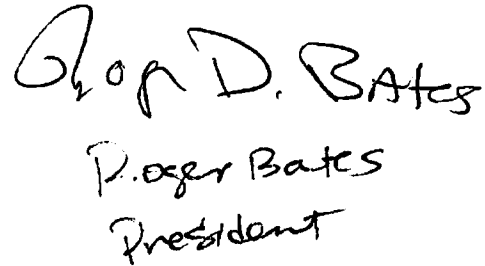 Roger D. Bates
Roger Bates
President